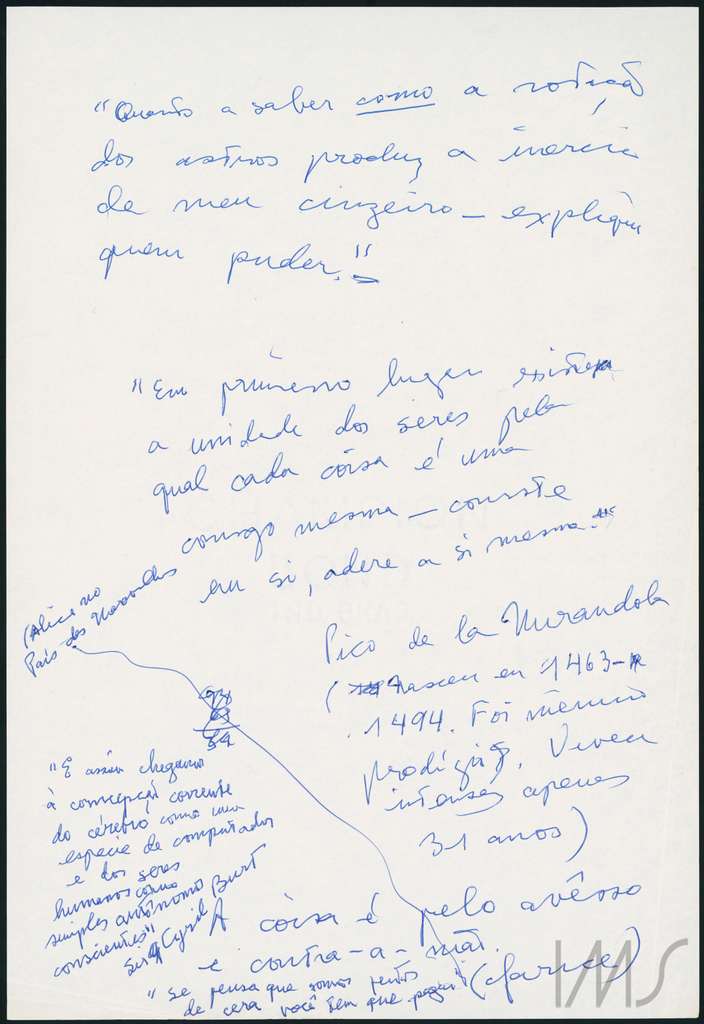 "Quanto a saber como a rotação
dos astros produz a inércia
de meu cinzeiro — explique
quem puder."
"Em primeiro lugar existe
a unidade dos seres pela
qual cada coisa é uma
consigo mesma — consiste
em si, adere a si mesma."
Pico de la Mirandola
(nasceu en 1463-
1494. Foi menino
prodígio. Viveu
apenas
31 anos)
(Alice no
País das Maravilhas
94
63
31
"E assim chegamos
à concepção corrente
do cérebro como uma
espécie de computador
e dos seres
humanos como
simples autônomo
conscientes"
Sir Cyril Burt
A coisa é pelo avêsso
e contra-a-mão.
(Clarice)
"Se pensa que somos feitos
de cera você tem que pagar"
IMS